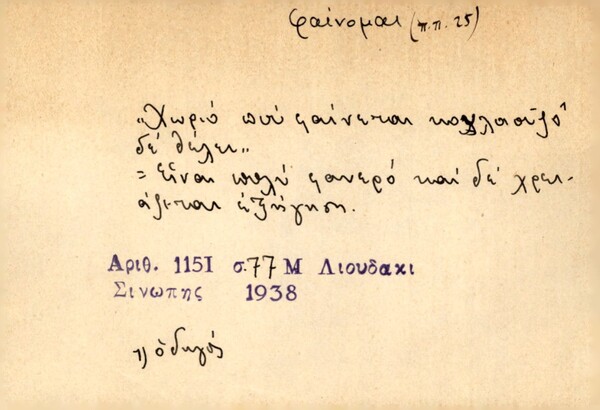 φαίνομαι (π.π. 25)
"Χωριό πού φαίνεται κολλαοῦζο¹
δέ θέλει"
= Εἶναι πολύ φανερό καί δέ χρει-
άζεται ἐξήγηση.
Αριθ. 1151 σ.77 Μ Λιουδακι
Σινωπης 1938
1) ὁδηγός